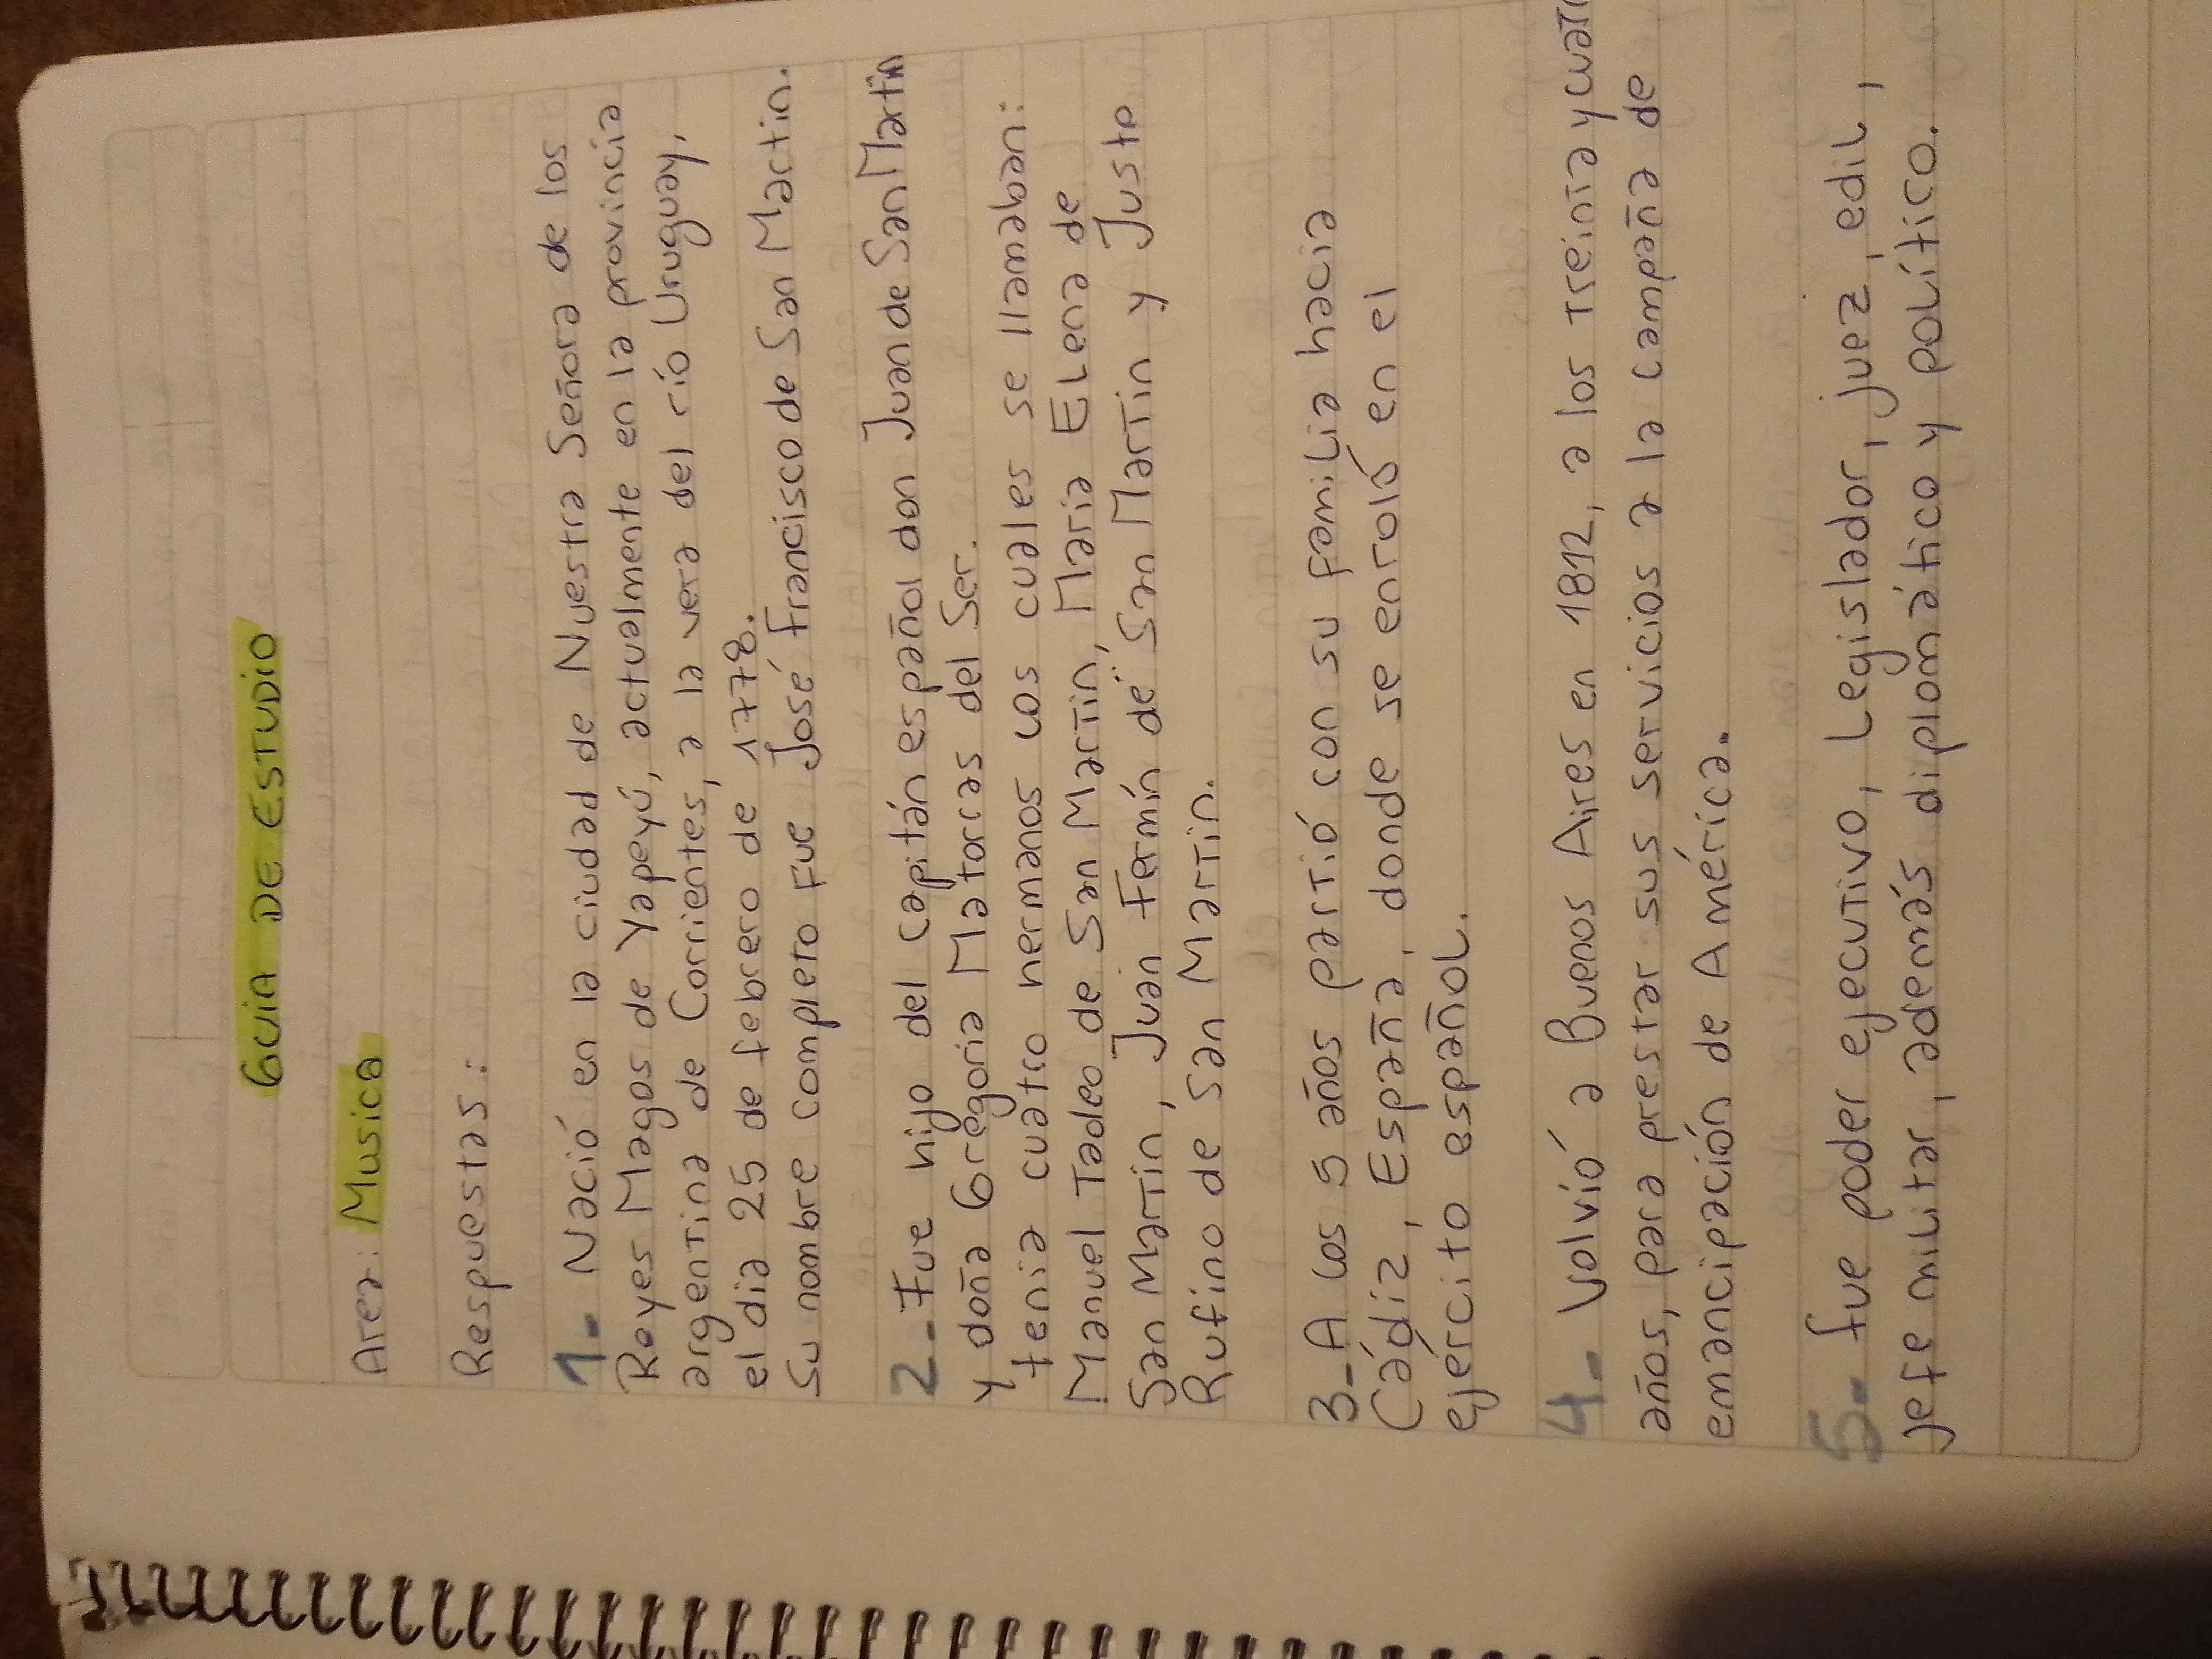 GUIA DE ESTUDIO
Area: Musica
Respuestas:
1- Nació en la ciudad de Nuestra Señora de los
Reyes Magos de Yapeyú, actualmente en la provincia
argentina de Corrientes, a la vera del río Uruguay,
el dia 25 de febrero de 1778.
Su nombre completo fue José Francisco de San Martin.
2- Fue hijo del capitán español don Juan de San Martin
y doña Gregoria Matorras del Ser.
tenia cuatro hermanos los cuales se llamaban:
Manuel Tadeo de San Martin, Maria Elena de
San Martin, Juan Fermín de San Martin y Justo
Rufino de San Martin.
3- A los 5 años partió con su familia hacia
Cádiz, España, donde se enroló en el
ejército español.
4- Volvió a Buenos Aires en 1812, a los treinta y cuatr
años, para prestar sus servicios a la campaña de
emancipación de América.
5- fue poder ejecutivo, Legislador, juez, edil,
jefe militar, además diplomático y político.